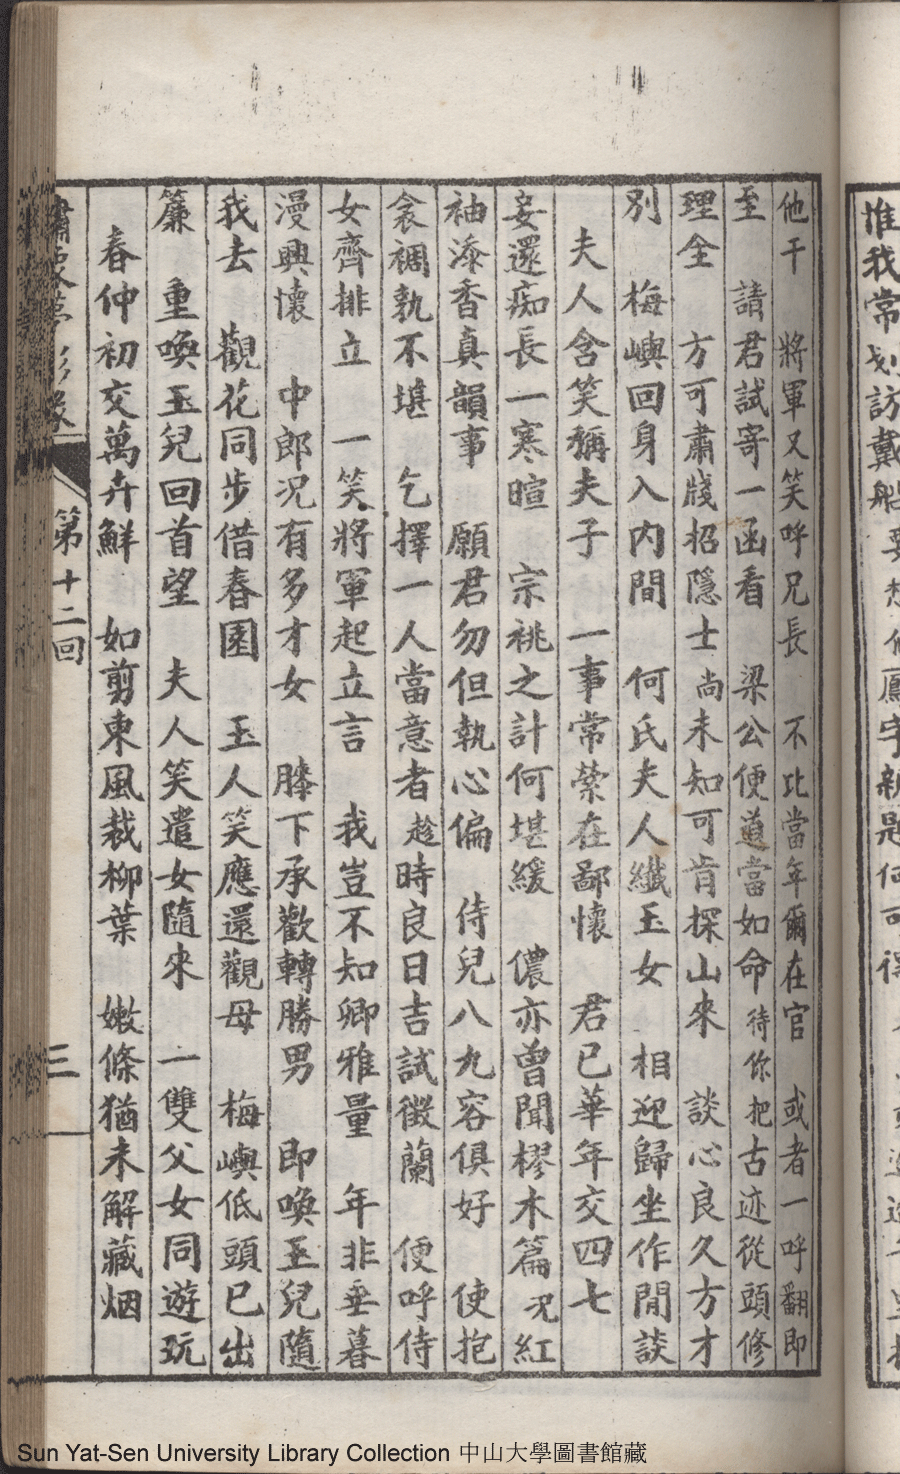 惟我常
訪戴船
他干　將軍又笑呼兄長　不比當年爾在官　或者一呼翻即
至　請君試寄一函看　梁公便道當如命　待你把古迹從頭修
理全　方可肅牋招隱士　尚未知可肯探山來　談心良久方才
別　梅嶼回身入內間　何氏夫人纖玉女　相迎歸坐作閒談
夫人含笑稱夫子　一事常縈在鄙懷　君已華年交四七
妾還痴長一寒暄　宗祧之計何堪緩　儂亦曾聞樛木篇　况紅
袖添香真韻事　願君勿但執心偏　侍兒八九容俱好　使抱
衾裯執不堪　乞擇一人當意者　趁時良日吉試徵蘭　便呼侍
女齊排立　一笑將軍起立言　我豈不知卿雅量　年非垂暮
漫興懷　中郎况有多才女　膝下承歡轉勝男　即喚玉兒隨
我去　觀花同步借春園　玉人笑應還觀母　梅嶼低頭已出
簾　重喚玉兒回首望　夫人笑遣女隨來　一雙父女同遊玩
春仲初交萬卉鮮　如剪東風裁柳葉　嫩條猶未解藏烟
第十二回
三
Sun Yat-Sen University Library Collection 中山大學圖書館藏